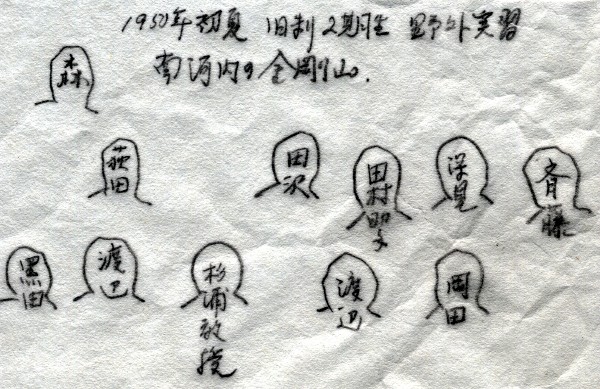 1950年初夏 旧制2期生 野外実習
南河内の金剛山.
森
荻田
田沢
田村昭子
深見
斉藤
黒田
渡辺
杉浦教授
渡辺
岡田